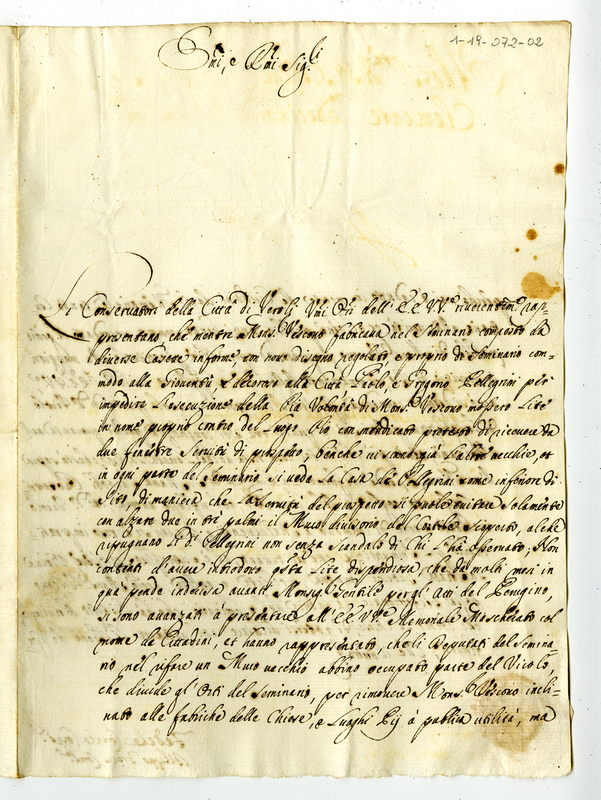 1-14-072-02
Emi, e Rmi Sig.ri
Li Conservatori della Città di Veroli Umi Ori dell' EE VV.e riverentem.e rap-
presentano che mentre Mons.r Vescovo fabricava nel Seminario composto da
diverse Casette informe con novo disegno regolato, e proprio di Seminario com-
modo alla Gioventù e decoroso alla Città Paolo, e Gregorio Pellegrini per
impedire l'esecuzione della Pia Volontà di Mons.r Vescovo mossero Lite
in nome proprio contro del Luogo Pio con mendicato pretesto di ricevere da
due fenestre Servitù di prospetto, benche vi siano già l'altre vecchie, et
in ogni parte del Seminario si veda la Casa de Pellegrini come inferiore di
Sito di maniera che la servitù del prospetto si puole evitare solamente
con alzare due in trè palmi il Muro divisorio del Cortile scoperto, al che
ripugnano li d.i Pellegrini non senza scandalo di Chi l'hà osservato; Non
contenti d'aver introdotto q.sta Lite dispendiosa, che da molti mesi in
qua pende indecisa avanti Monsig.r Gentile per gl' Atti del Perugino,
si sono avanzati à presentare all' EE VV.re Memoriale Mascherato col
nome de Cittadini, et hanno rappresentato, che li Deputati del Semina-
rio nel rifare un Muro vecchio abbino occupato parte del Vicolo,
che divide gl' Orti del Seminario, per rimovere Mons.r Vescovo incli-
nato alle fabriche delle Chiese, e Luoghi Pij à publica utilità, ma